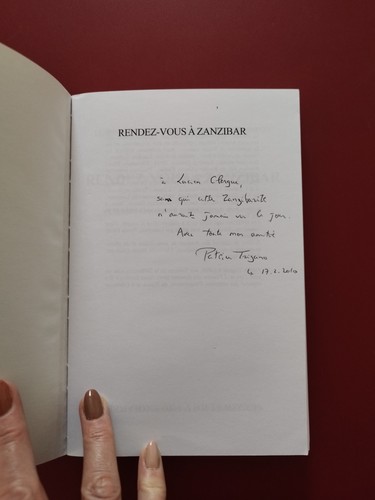 RENDEZ-VOUS À ZANZIBAR
à Lucien Clergue,
sans qui cette Zanzibarite
n'aurait jamais vu le jour.
Avec toute mon amitié
Patrice Trigano
le 17.6.2010